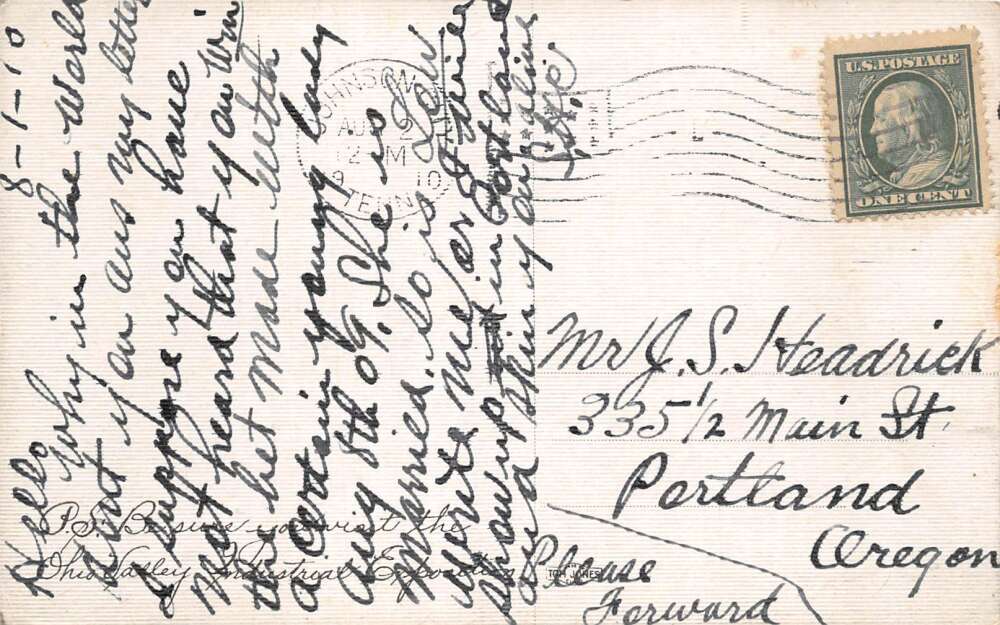 8-1-10
Hello Why in the world
dont you ans my letter
I suppose you have
not heard that you win
the bet made with
a certain young lady
Aug 8th 09. She is
Married. So is Lew
write me or I
show up in Portland
and skin you alive
P.S. Be sure you visit the
Ohio Valley Industrial Exposition
JOHNSON
AUG
12 M
1910
TENN
U.S. POSTAGE
ONE CENT
Mr J. S. Headrick
335 1/2 Main St.
Portland
Oregon
Please
Forward
TOM JONES